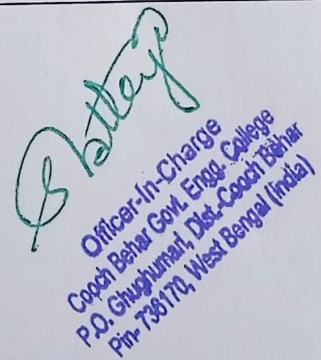 Officer-In-Charge
Cooch Behar Govt. Engg. College
P.O. Ghughumari, Dist.-Cooch Behar
Pin- 736170, West Bengal (India)